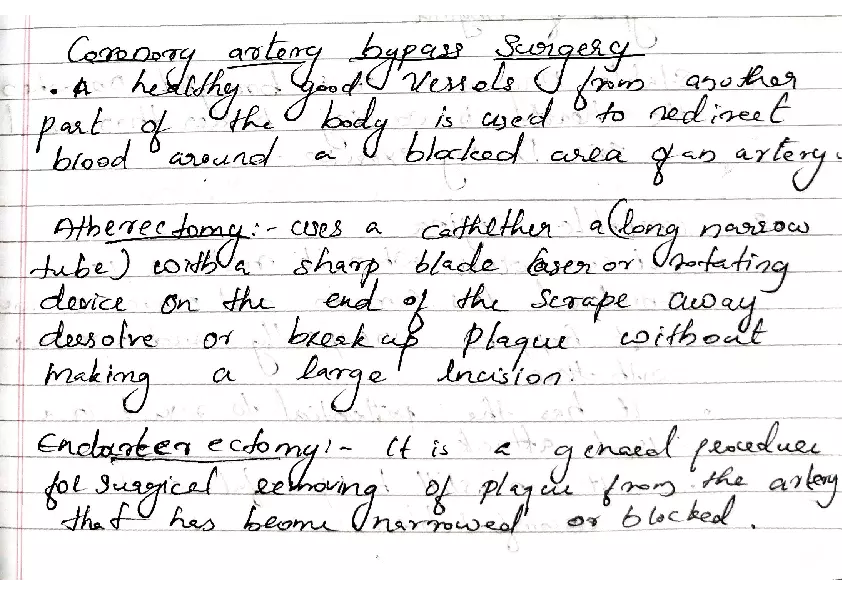 Coronory artery bypass Surgery
. A healthy good Vessels from another
part of the body is used to redirect
blood around a blocked area of an artery.
Atherectomy:- uses a cathether a (long narrow
tube) with a sharp blade laser or rotating
device on the end of the scrape away
dessolve or break up plaque without
making a large incision.
Endarterectomy:- It is a general procedure
for surgical removing of plaque from the artery
that has become narrowed or blocked.